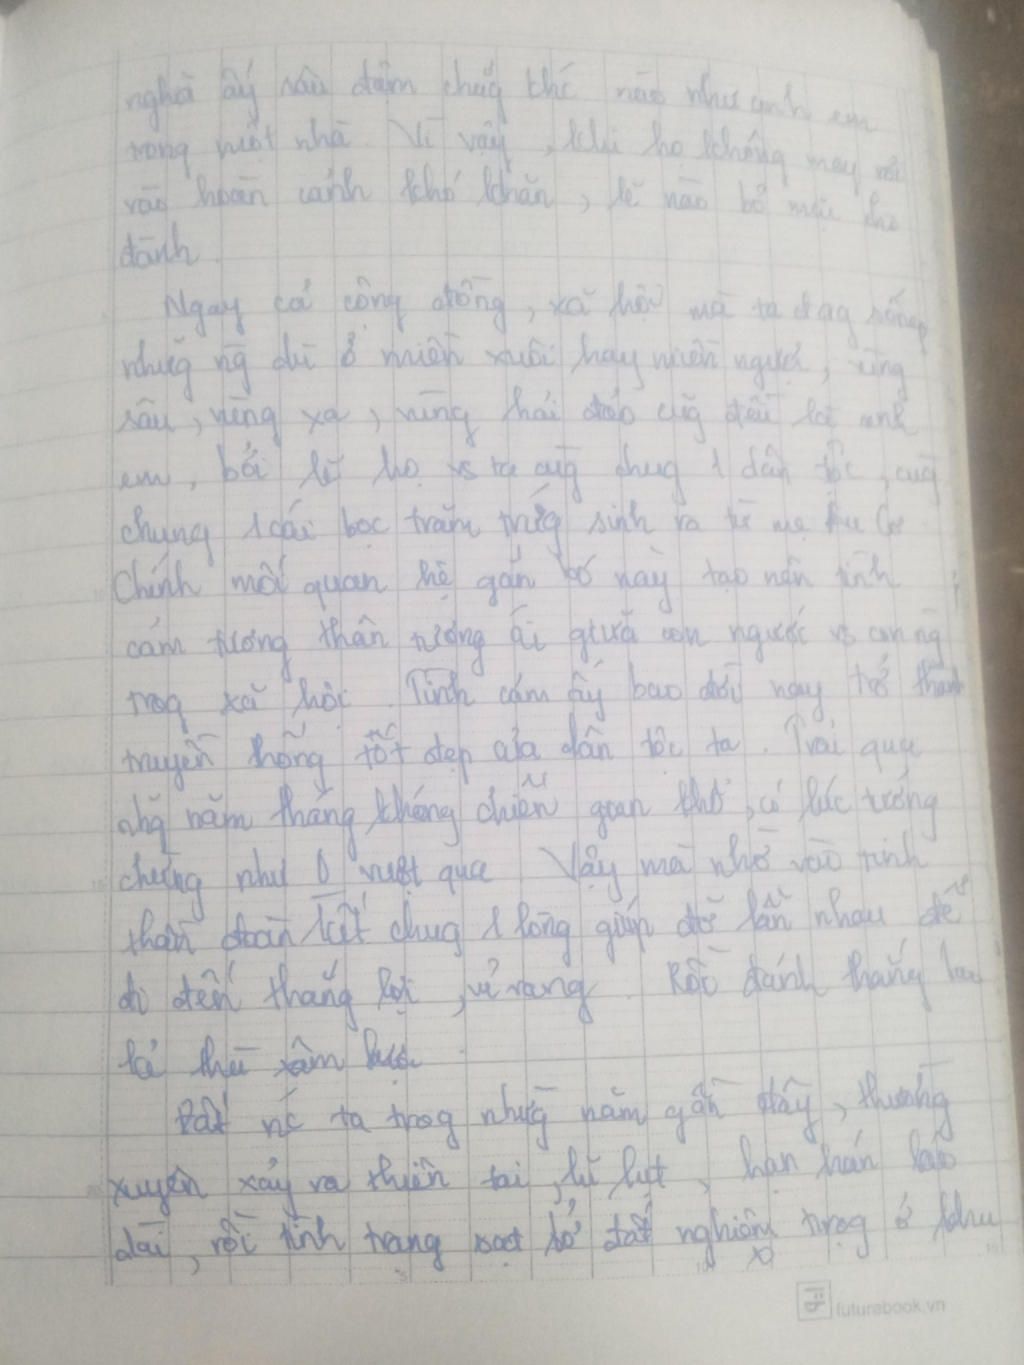 nghĩa ấy sâu đậm chẳg khác nào như anh em
trong một nhà. Vì vậy, khi họ không may rơi
vào hoàn cảnh khó khăn, lẽ nào bỏ mặc cho
đành.
Ngay cả cộng đồng, xã hội mà ta đag sống
nhữg ng dù ở miền xuôi hay miền ngược, vùng
sâu, vùng xa, vùng hải đảo cũg đều là anh
em, bởi lẽ họ vs ta cùg chug 1 dân tộc, cùg
chung 1 cái bọc trăm trứg sinh ra từ mẹ Âu Cơ.
Chính mối quan hệ gắn bó này tạo nên tình
cảm tương thân tương ái giữa con người vs con ng
trog xã hội. Tình cảm ấy bao đời nay trở thành
truyền thống tốt đẹp của dân tộc ta. Trải qua
nhữg năm tháng kháng chiến gian khổ, có lúc tưởng
chừng như 0 vượt qua. Vậy mà nhờ vào tinh
thần đoàn kết chug 1 lòng giúp đỡ lẫn nhau để
đi đến thắng lợi, vẻ vang. Rồi đánh thắng
kẻ thù xâm lược.
Đất nc ta trog nhữg năm gần đây, thường
xuyên xảy ra thiên tai, lũ lụt, hạn hán kéo
dài, rồi tình trạng sạt lở đất nghiêm trọg ở khu
futurebook.vn